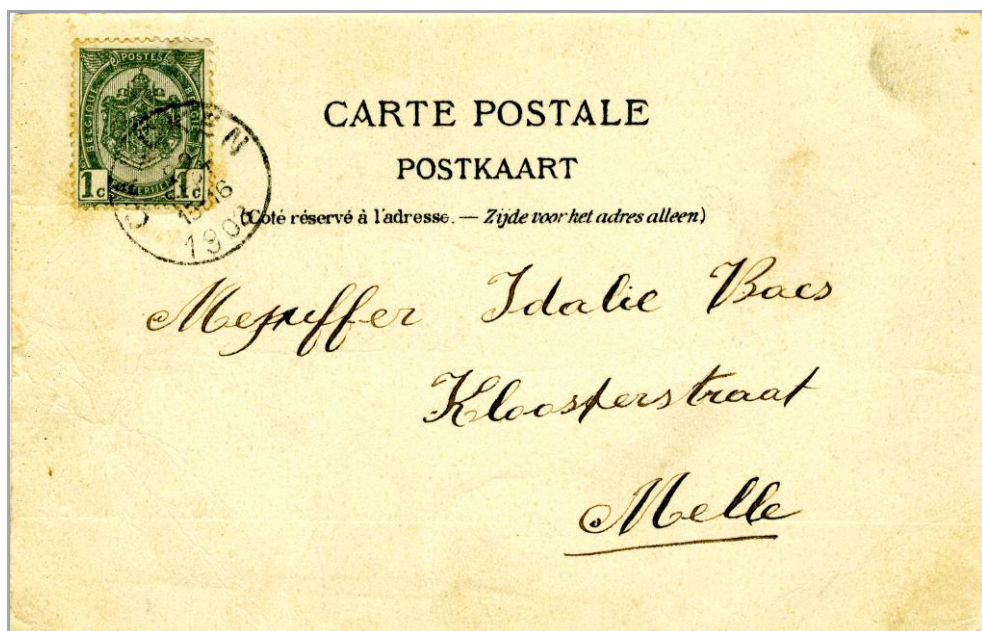 POSTES
BELGIQUE BELGIË
1c POSTERIJEN 1c
15-16
CARTE POSTALE
POSTKAART
(Côté réservé à l'adresse. — Zijde voor het adres alleen)
Mejuffer Idalie Baes
Kloosterstraat
Melle